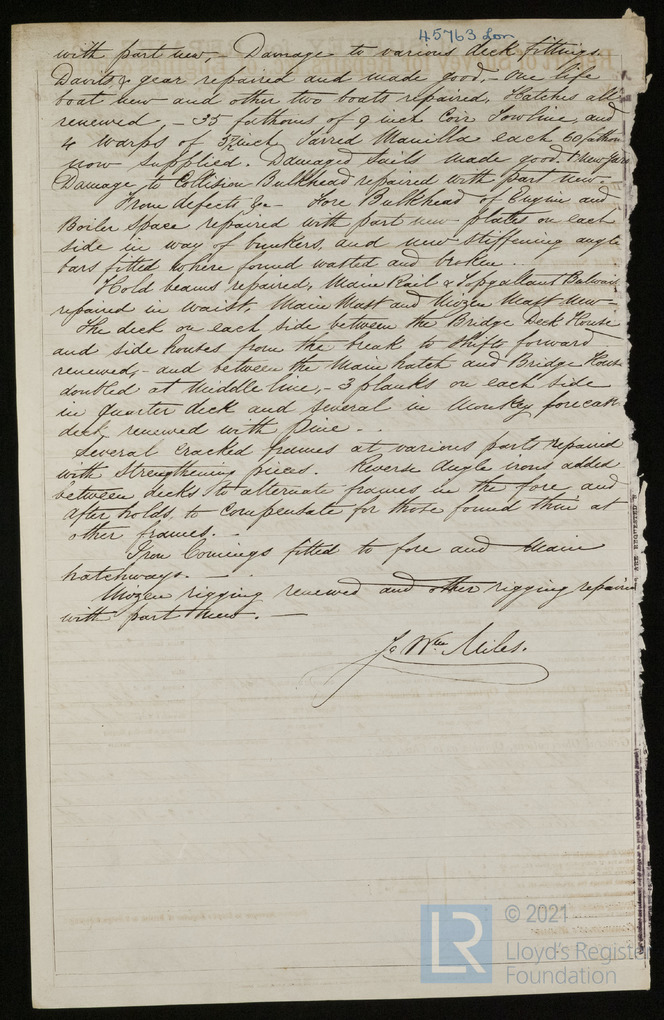 45763 Lon
with part new, - Damage to various deck fittings
Davits & gear repaired and made good, - One life
boat new and other two boats repaired, Hatches all
renewed - 35 fathoms of 9 inch Coir Towline, and
4 Warps of inch Tarred Manilla each 60 fathom
now supplied. Damaged Sails made good. & New
Damage to Collision Bulkhead repaired with part new -
From defects &c - Fore Bulkhead of Engine and
Boiler Space repaired with part new plates on each
side in way of bunkers, and new stiffening angle
bars fitted where found wasted and broken ..
Hold beams repaired, Main Rail & Topgallant Bulwark
repaired in Waist, Main Mast and Mizen Mast new -
The deck on each side between the Bridge Deck House
and side houses from the break to forward
renewed, - and between the Main hatch and Bridge House
doubled at Middle line, - 3 planks on each side
in quarter deck and several in Monkey forecastle
deck renewed with pine . .
Several cracked frames at various parts repaired
with strengthening pieces. Reverse Angle irons added
between decks to alternate frames in the fore and
after holds, to compensate for those found thin at
other frames. -
Iron Comings fitted to fore and Main
hatchways. -
Mizen rigging renewed and other rigging repaired
with part new. -
Jo Wm Miles.
ARE REQUESTED
LR
© 2021
Lloyd's Register
Foundation